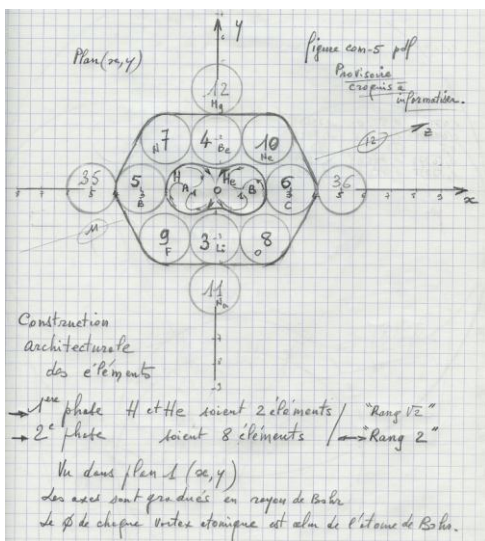 y
Plan (x, y)
figure com-5 pdf
Provisoire
croquis à
informatiser.
12
Hg
7
N
4
Be
10
Ne
12
z
35
5
B
H
A
1
0
He
B
6
C
36
x
11
9
F
3
Li
8
O
11
Na
Construction
architecturale
des éléments
→ 1ère phase H et He soient 2 éléments / "Rang √2"
→ 2e phase soient 8 éléments / ↔ "Rang 2"
Vu dans plan 1 (x, y)
Les axes sont gradués en rayon de Bohr
Le Ø de chaque vortex atomique est celui de l'atome de Bohr.